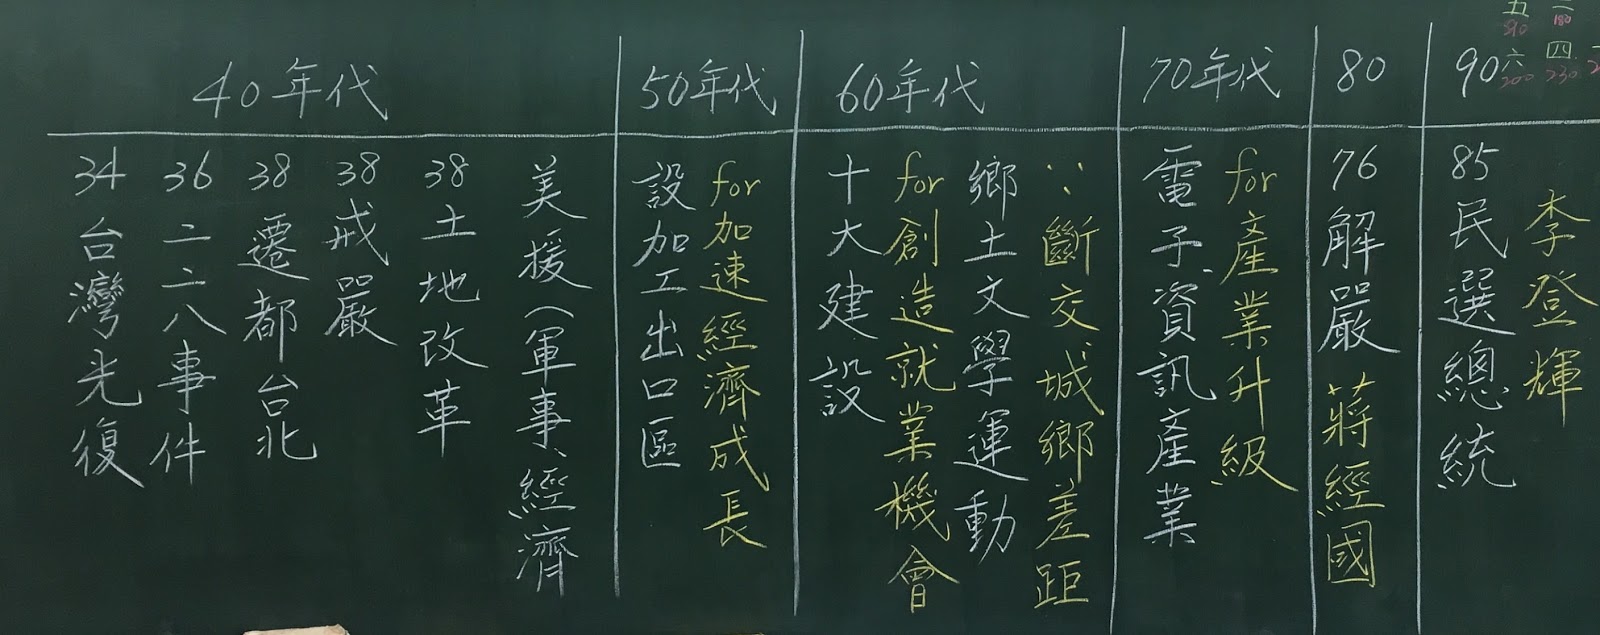 40年代
34台灣光復
36二二八事件
38遷都台北
38戒嚴
38土地改革
美援(軍事、經濟
50年代
設加工出口區
for加速經濟成長
60年代
十大建設
for創造就業機會
鄉土文學運動
∵斷交、城鄉差距
70年代
電子、資訊產業
for產業升級
80
76解嚴 蔣經國
90
85民選總統
李登輝
五 三
510 180
六 四
200 230